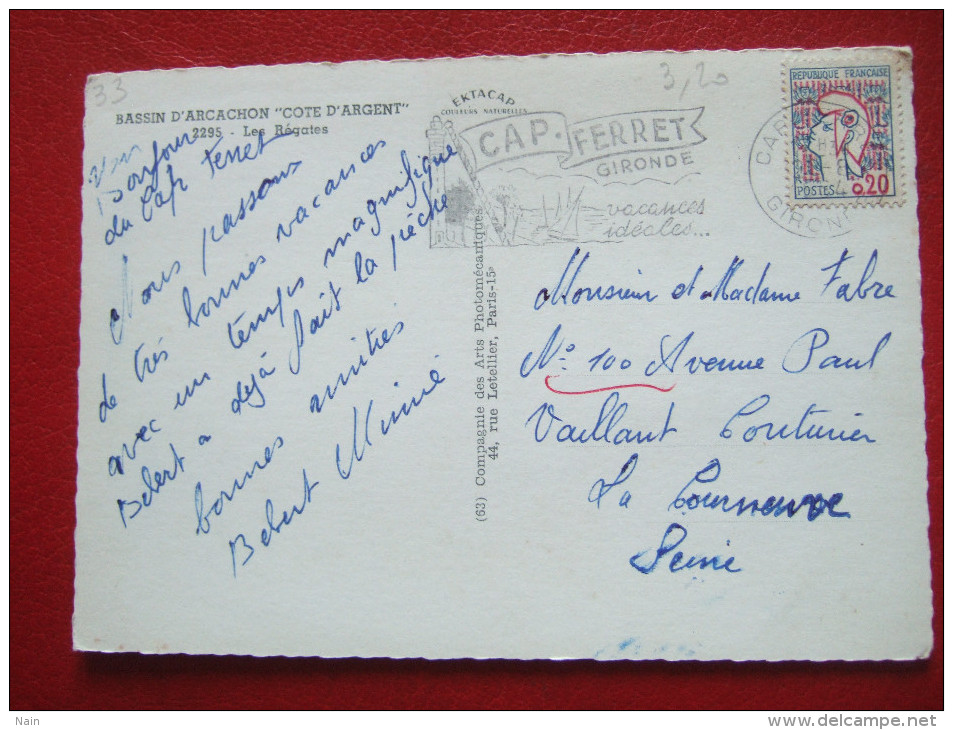 33
3,20
BASSIN D'ARCACHON "COTE D'ARGENT"
2295 - Les Régates
EKTACAP
COULEURS NATURELLES
CAP-FERRET
GIRONDE
vacances
idéales...
REPUBLIQUE FRANÇAISE
POSTES 0,20
GIRONDE
Bonjour
du Cap Ferret
Nous passons
de très bonnes vacances
avec un temps magnifique
Bebert a déjà fait la pêche
bonnes amitiés
Bebert Mimie
(63) Compagnie des Arts Photomécaniques
44, rue Letellier, Paris-15e
Monsieur et Madame Fabre
N° 100 Avenue Paul
Vaillant Couturier
La Courneuve
Seine
Nain
http://www.delcampe.net